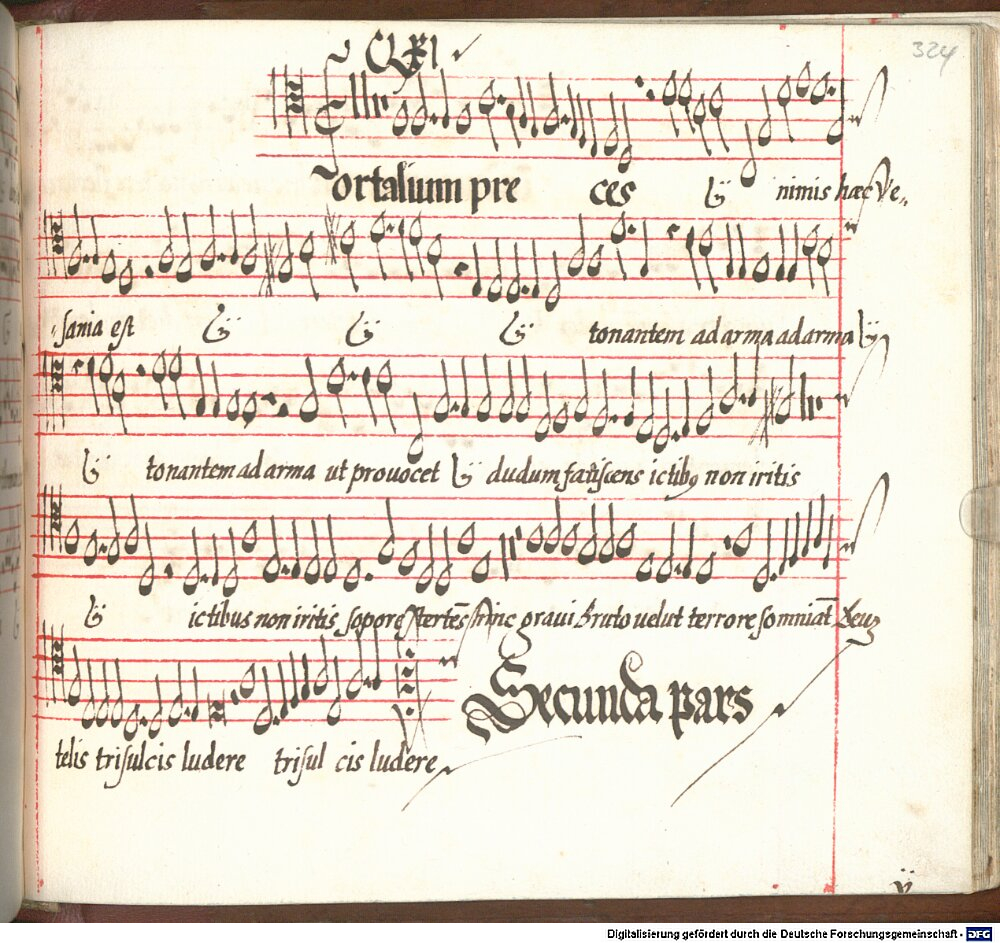 CLXI
324
ortalium pre ces ij nimis hæc Ve,,
,, sania est ij ij ij tonantem ad arma ad arma ij
ij tonantem ad arma ut provocet ij dudum fatiscens ictibꝫ non iritis
ij ictibus non iritis sopore stertẽs hinc gravi bruto velut terrore somniat̄
telis trisulcis ludere trisul cis ludere
Secunda pars
Digitalisierung gefördert durch die Deutsche Forschungsgemeinschaft - DFG